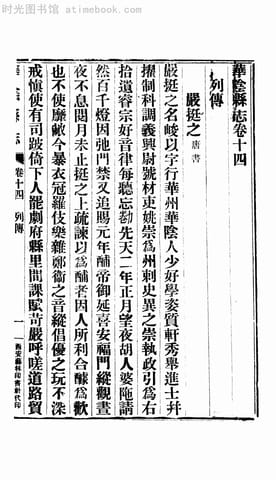 时光图书馆 - atime@bookser.com
華陰縣志卷十四
列傳
嚴挺之 唐書
嚴挺之名峻以字行華州華陰人少好學姿質軒秀舉進士幷
擢制科調義興尉號材吏姚崇爲州刺史異之崇執政引爲右
拾遺睿宗好音律每聽忘勌先天二年正月望夜胡人婆陁請
然百千燈因弛門禁又追賜元年酺帝御延喜安福門縱觀晝
夜不息閱月未止挺之上疏諫以爲酺者因人所利合醵爲歡
也不使靡敝今暴衣冠羅伎樂雜鄭衞之音縱倡優之玩不深
戒愼使有司跛倚下人罷劇府縣里閭課賦苛嚴呼嗟道路貿
華陰縣志
卷十四 列傳
一
西安藝林印書社代印